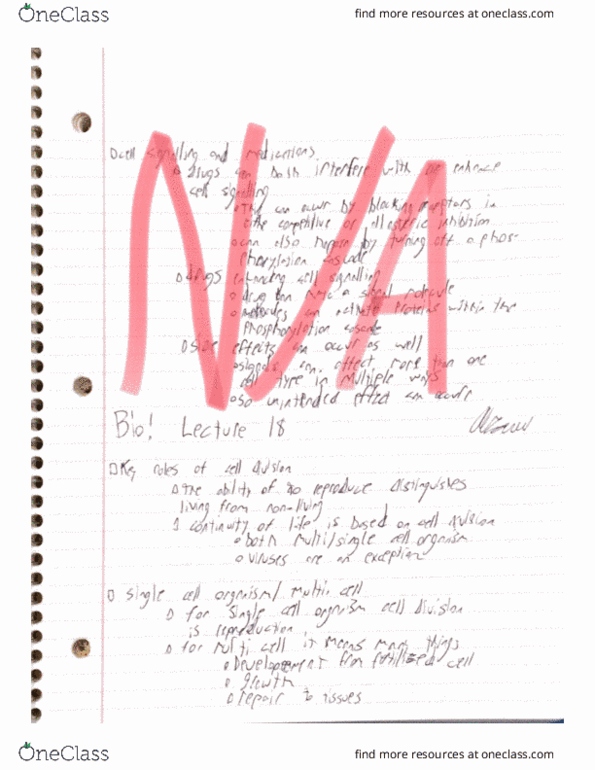 OneClass
find more resources at oneclass.com
N/A
cell signalling and medications
drugs can both interfere with or enhance
cell signalling
this can occur by blocking receptors in
either competitive or allosteric inhibition
can also happen by turning off a phos-
phorylation cascade
drugs enhancing cell signalling
drug can a signal molecule
molecules can activate proteins within the
Phosphorylation cascade
Side effects can occur as well
signals can effect more than one
cell type in multiple ways
so unintended effect can occur
Bio! Lecture 18
Key roles of cell division
The ability of to reproduce distinguishes
living from non-living
continuity of life is based on cell division
both multi/single cell organism
viruses are an exception
Single cell organism/multi cell
for single cell organism cell division
is reproduction,
for multi cell it means many things
Development from fertilized cell
growth
repair to issues
OneClass
find more resources at oneclass.com